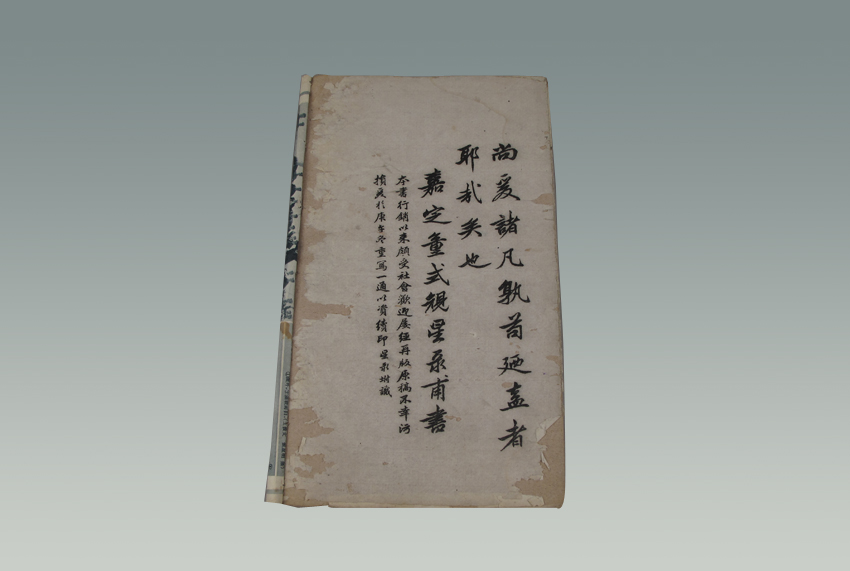 尚爰諸凡孰苟廼盍者
耶哉矣也
嘉定童式規星录甫書
本書行銷以來頗受社會歡迎屢經再版原稿不幸污
損爰於庚午冬重寫一通以資續印星录附識